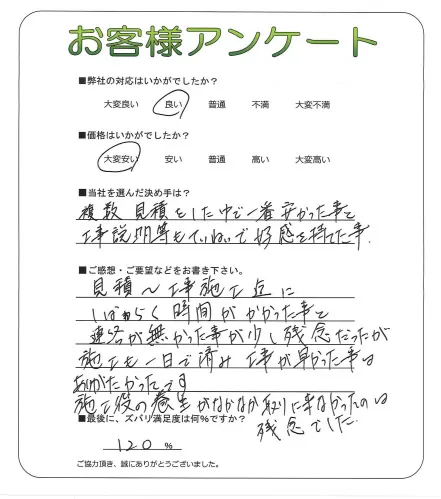 お客様アンケート
■弊社の対応はいかがでしたか?
大変良い 良い 普通 不満 大変不満
■価格はいかがでしたか?
大変安い 安い 普通 高い 大変高い
■当社を選んだ決め手は?
複数見積をした中で一番安かった事と
工事説明等もていねいで好感を持てた事.
■ご感想・ご要望などをお書き下さい。
見積〜工事施工迄に
しばらく時間がかかった事と
連絡が無かった事が少し残念だったが
施工も一日で済み工事が早かった事は
ありがたかったです
施工後の養生がなかなか取りに来なかったのは
残念でした
■最後に、ズバリ満足度は何%ですか?
120 %
ご協力頂き、誠にありがとうございました。